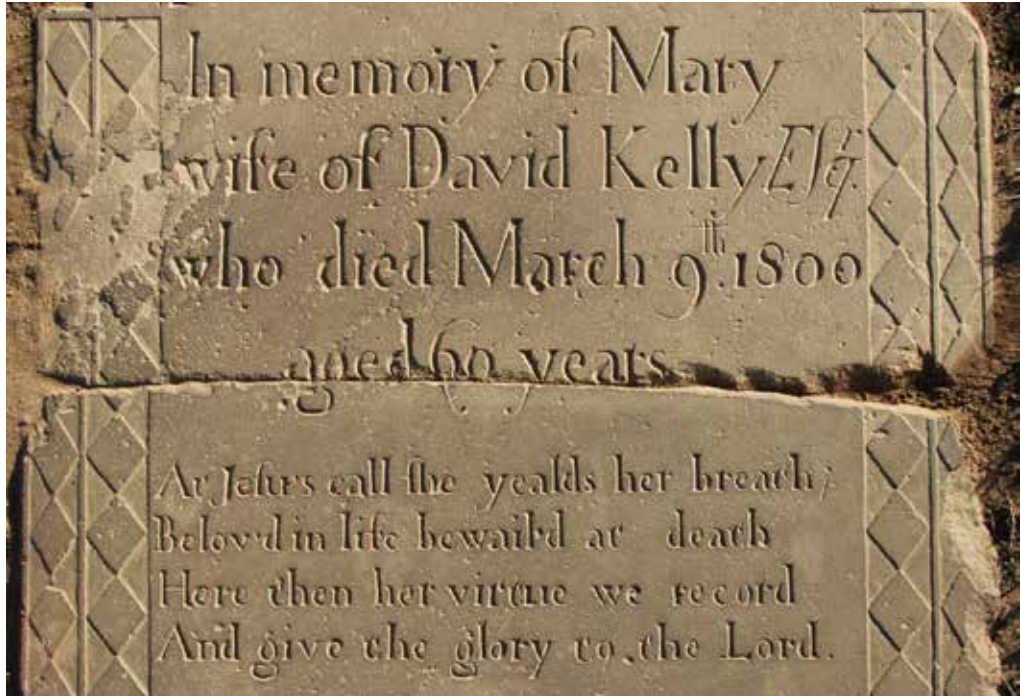 In memory of Mary
wife of David Kelly Eſqr.
who died March 9th. 1800
aged 69 years
At Jeſus call ſhe yealds her breath;
Belov'd in life bewail'd at death
Here then her virtue we record
And give the glory to the Lord.